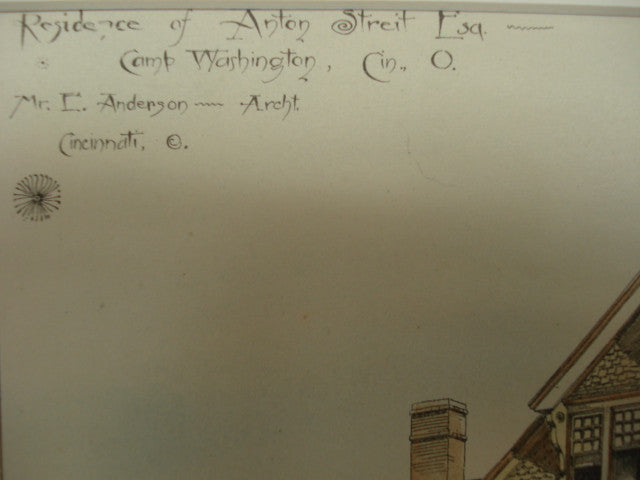 Residence of Anton Streit Esq.
Camp Washington, Cin., O.
Mr. E. Anderson — Archt.
Cincinnati, O.